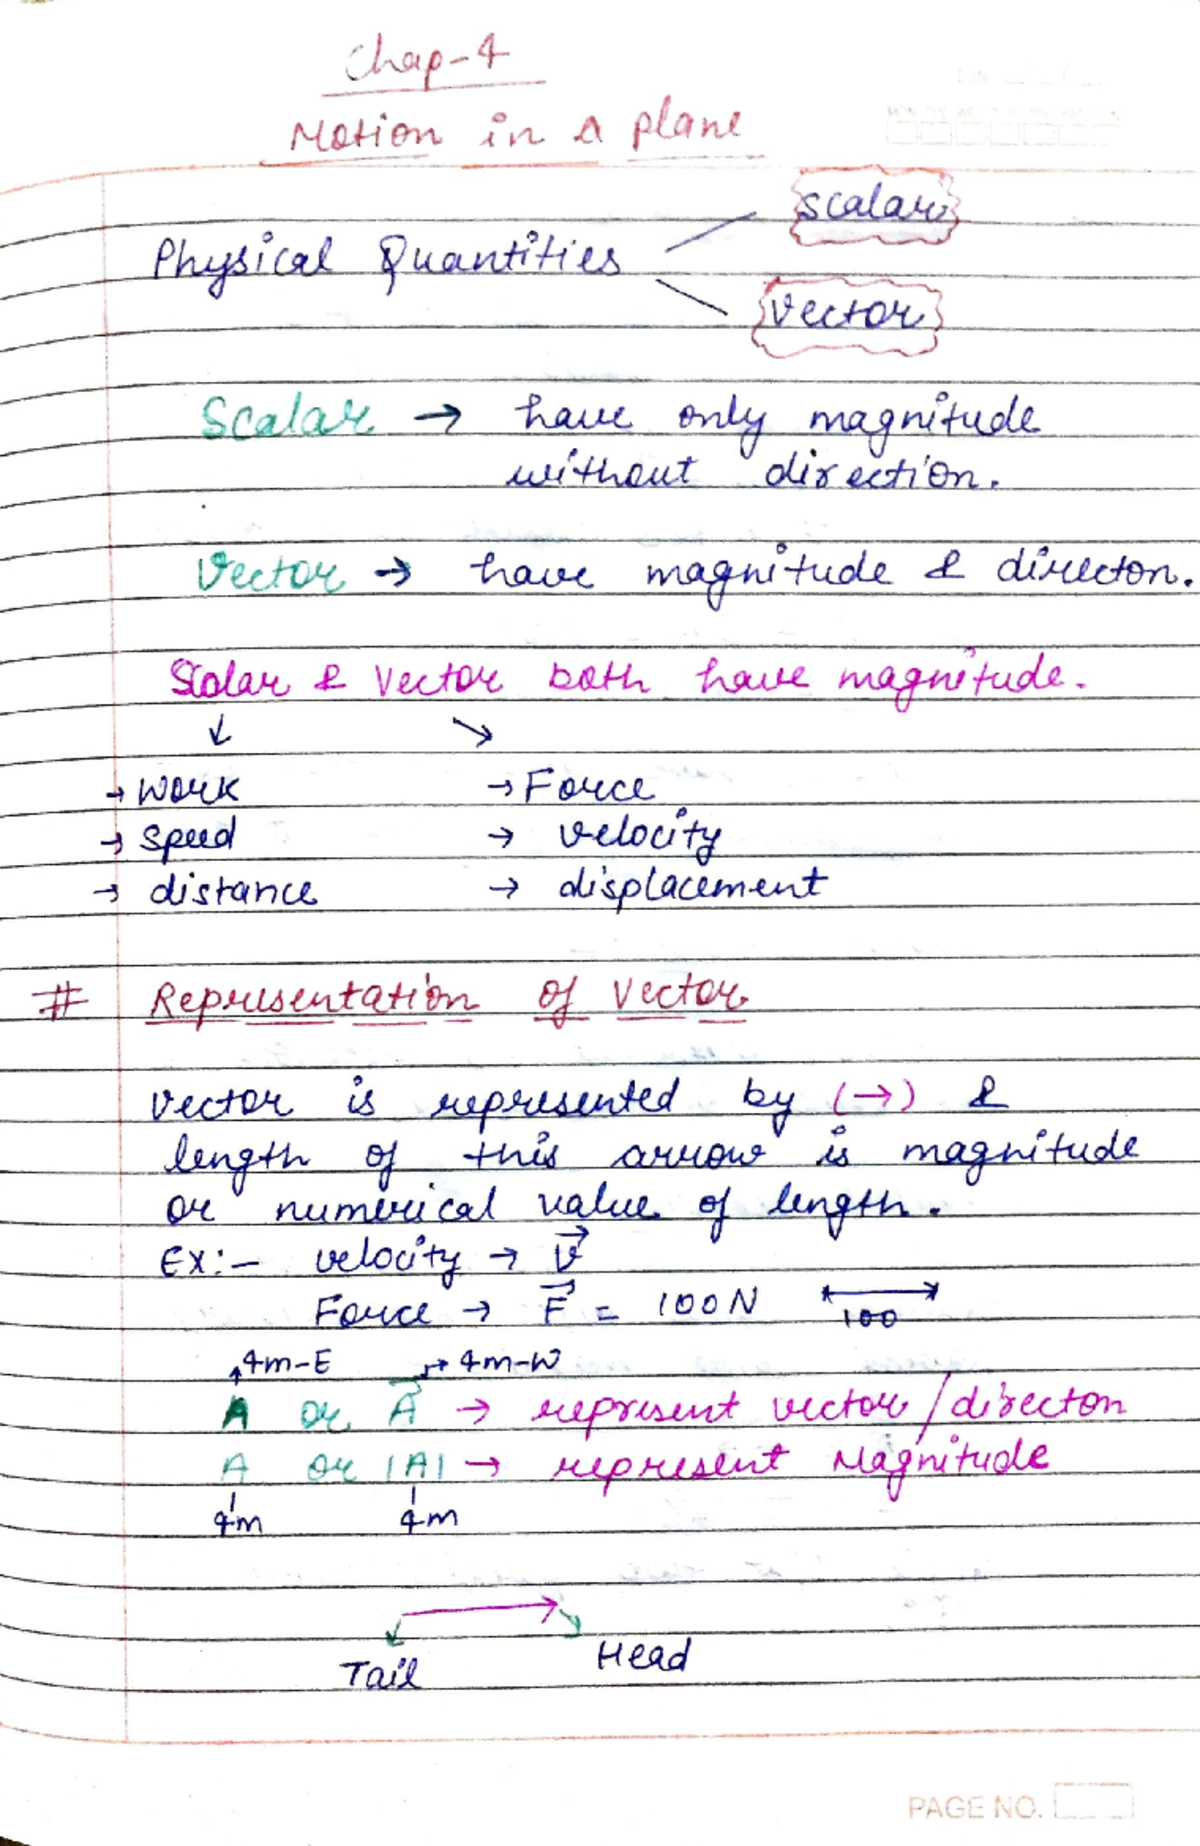 Chap-4
Motion in a plane
Scalar
Physical Quantities
Vector
Scalar → have only magnitude
without direction.
Vector → have magnitude & directon.
Scalar & Vector both have magnitude.
↓ ↘
→ Work → Force
→ speed → velocity
→ distance → displacement
# Representation of Vector
Vector is represented by (→) &
length of this arrow is magnitude
or numerical value of length.
Ex:- velocity → v⃗
Force → F⃗ = 100N 100
4m-E 4m-W
A or A⃗ → represent vector/directon
A or |A| → represent Magnitude
4m 4m
Tail Head
PAGE NO.